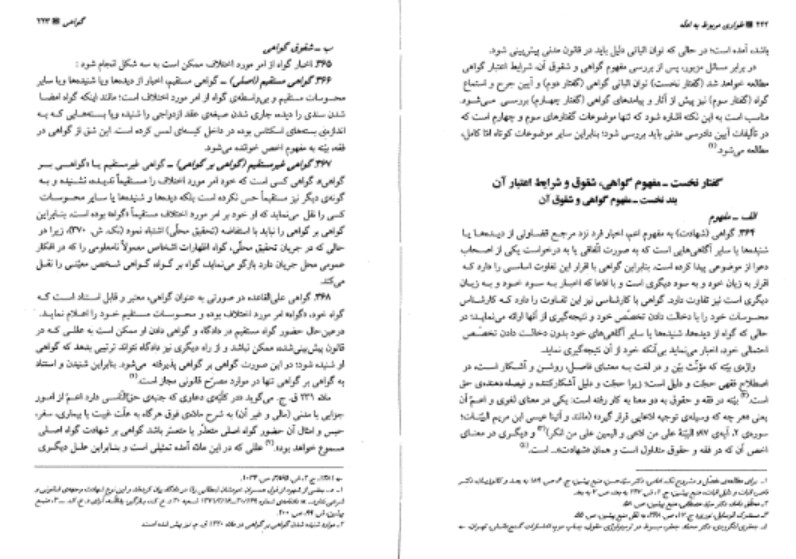 ۲۲۲ ■ طواری مربوط به ادله
باشد، آمده است؛ در حالی که توان اثباتی دلیل باید در قانون مدنی پیش‌بینی شود.
در برابر مسائل مزبور، پس از بررسی مفهوم گواهی و شقوق آن، شرایط اعتبار گواهی
مطالعه خواهد شد (گفتار نخست) توان اثباتی گواهی (گفتار دوم) و آیین جرح و استماع
گواه (گفتار سوم) نیز پیش از آثار و پیامدهای گواهی (گفتار چهارم) بررسی می‌شود.
مناسب است به این نکته اشاره شود که تنها موضوعات گفتارهای سوم و چهارم است که
در تألیفات آیین دادرسی مدنی باید بررسی شود؛ بنابراین سایر موضوعات کوتاه امّا کامل،
مطالعه می‌شود.(۱)
گفتار نخست ـ مفهوم گواهی، شقوق و شرایط اعتبار آن
بند نخست ـ مفهوم گواهی و شقوق آن
الف ـ مفهوم
۳۶۴. گواهی (شهادت) به مفهوم اعم، اخبار فرد نزد مرجع قضاوتی از دیده‌ها یا
شنیده‌ها یا سایر آگاهی‌هایی است که به صورت اتّفاقی یا به درخواست یکی از اصحاب
دعوا از موضوعی پیدا کرده است. بنابراین گواهی با اقرار این تفاوت اساسی را دارد که
اقرار به زیان خود و به سود دیگری است و با ادّعا که اخبار به سود خود و به زیان
دیگری است نیز تفاوت دارد. گواهی با کارشناسی نیز این تفاوت را دارد که کارشناس
محسوسات خود را با دخالت دادن تخصّص خود و نتیجه‌گیری از آنها ارائه می‌نماید؛ در
حالی که گواه از دیده‌ها، شنیده‌ها یا سایر آگاهی‌های خود بدون دخالت دادن تخصّص
احتمالی خود، اخبار می‌نماید بی‌آنکه خود از آن نتیجه‌گیری نماید.
واژه‌ی بیّنه که مؤنّث بیّن و در لغت به معنای فاصل، روشن و آشکار است، در
اصطلاح فقهی حجّت و دلیل است؛ زیرا حجّت و دلیل آشکارکننده و فیصله‌دهنده‌ی حق
است.(۲) بیّنه در فقه و حقوق به دو معنا به کار رفته است: یکی در معنای لغوی و اعمّ آن
یعنی «هر چه که وسیله‌ی توجیه ادّعایی قرار گیرد» (مانند و آتینا عیسی ابن مریم البیّنات؛
سوره‌ی ۲، آیه‌ی ۸۷؛ البیّنة علی من ادّعی و الیمین علی من انکر)(۳) و دیگری در معنای
اخصّ آن که در فقه و حقوق متداول است و همان «شهادت» است.(۴)
ب ـ شقوق گواهی
گواهی ■ ۲۲۳
۳۶۵. اخبار گواه از امر مورد اختلاف ممکن است به سه شکل انجام شود :
۳۶۶. گواهی مستقیم (اصلی) ـ گواهی مستقیم، اخبار از دیده‌ها ویا شنیده‌ها ویا سایر
محسوسات مستقیم و بی‌واسطه‌ی گواه از امر مورد اختلاف است؛ مانند اینکه گواه امضا
شدن سندی را دیده، جاری شدن صیغه‌ی عقد ازدواجی را شنید، ویا بسته‌هایی که به
اندازه‌ی بسته‌های اسکناس بوده در داخل کیسه‌ای لمس کرده است. این شق از گواهی در
فقه، بیّنه به مفهوم اخص خوانده می‌شود.
۳۶۷. گواهی غیرمستقیم (گواهی بر گواهی) ـ گواهی غیرمستقیم یا «گواهی بر
گواهی»، گواهی کسی است که خود امر مورد اختلاف را مستقیماً ندیده، نشنیده و به
گونه‌ی دیگر نیز مستقیماً حس نکرده است بلکه دیده‌ها و شنیده‌ها یا سایر محسوسات
کسی را نقل می‌نماید که او خود بر امر مورد اختلاف مستقیماً «گواه» بوده است. بنابراین
گواهی بر گواهی را نباید با استفاضه (تحقیق محلّی) اشتباه نمود (نک. ش. ۳۷۰)، زیرا در
حالی که در جریان تحقیق محلّی، گواه اظهارات اشخاص معمولاً نامعلومی را که در افکار
عمومی محل جریان دارد بازگو می‌نماید، گواه بر گواه، گواهی شخص معیّنی را نقل
می‌کند.
۳۶۸. گواهی علی‌القاعده در صورتی به عنوان گواهی، معتبر و قابل استناد است که
گواه خود، «گواه» امر مورد اختلاف بوده و محسوسات مستقیم خود را اعلام نماید.
درعین‌حال حضور گواه مستقیم در دادگاه و گواهی دادن او ممکن است به عللی که در
قانون پیش‌بینی‌شده، ممکن نباشد و از راه دیگری نیز دادگاه نتواند ترتیبی بدهد که گواهی
او شنیده شود؛ در این صورت گواهی بر گواهی پذیرفته می‌شود. بنابراین شنیدن و استناد
به گواهی بر گواهی تنها در موارد مصرّح قانونی مجاز است.(۱)
ماده ۲۳۱ ق. ج. می‌گوید: «در کلّیه‌ی دعاوی که جنبه‌ی حق‌النّاسی دارد اعم از امور
جزایی یا مدنی (مالی و غیر آن) به شرح ماده‌ی فوق هرگاه به علّت غیبت یا بیماری، سفر،
حبس و امثال آن حضور گواه اصلی متعذّر یا متعسّر باشد گواهی بر شهادت گواه اصلی
مسموع خواهد بود».(۲) عللی که در این ماده آمده تمثیلی است و بنابراین علل دیگری